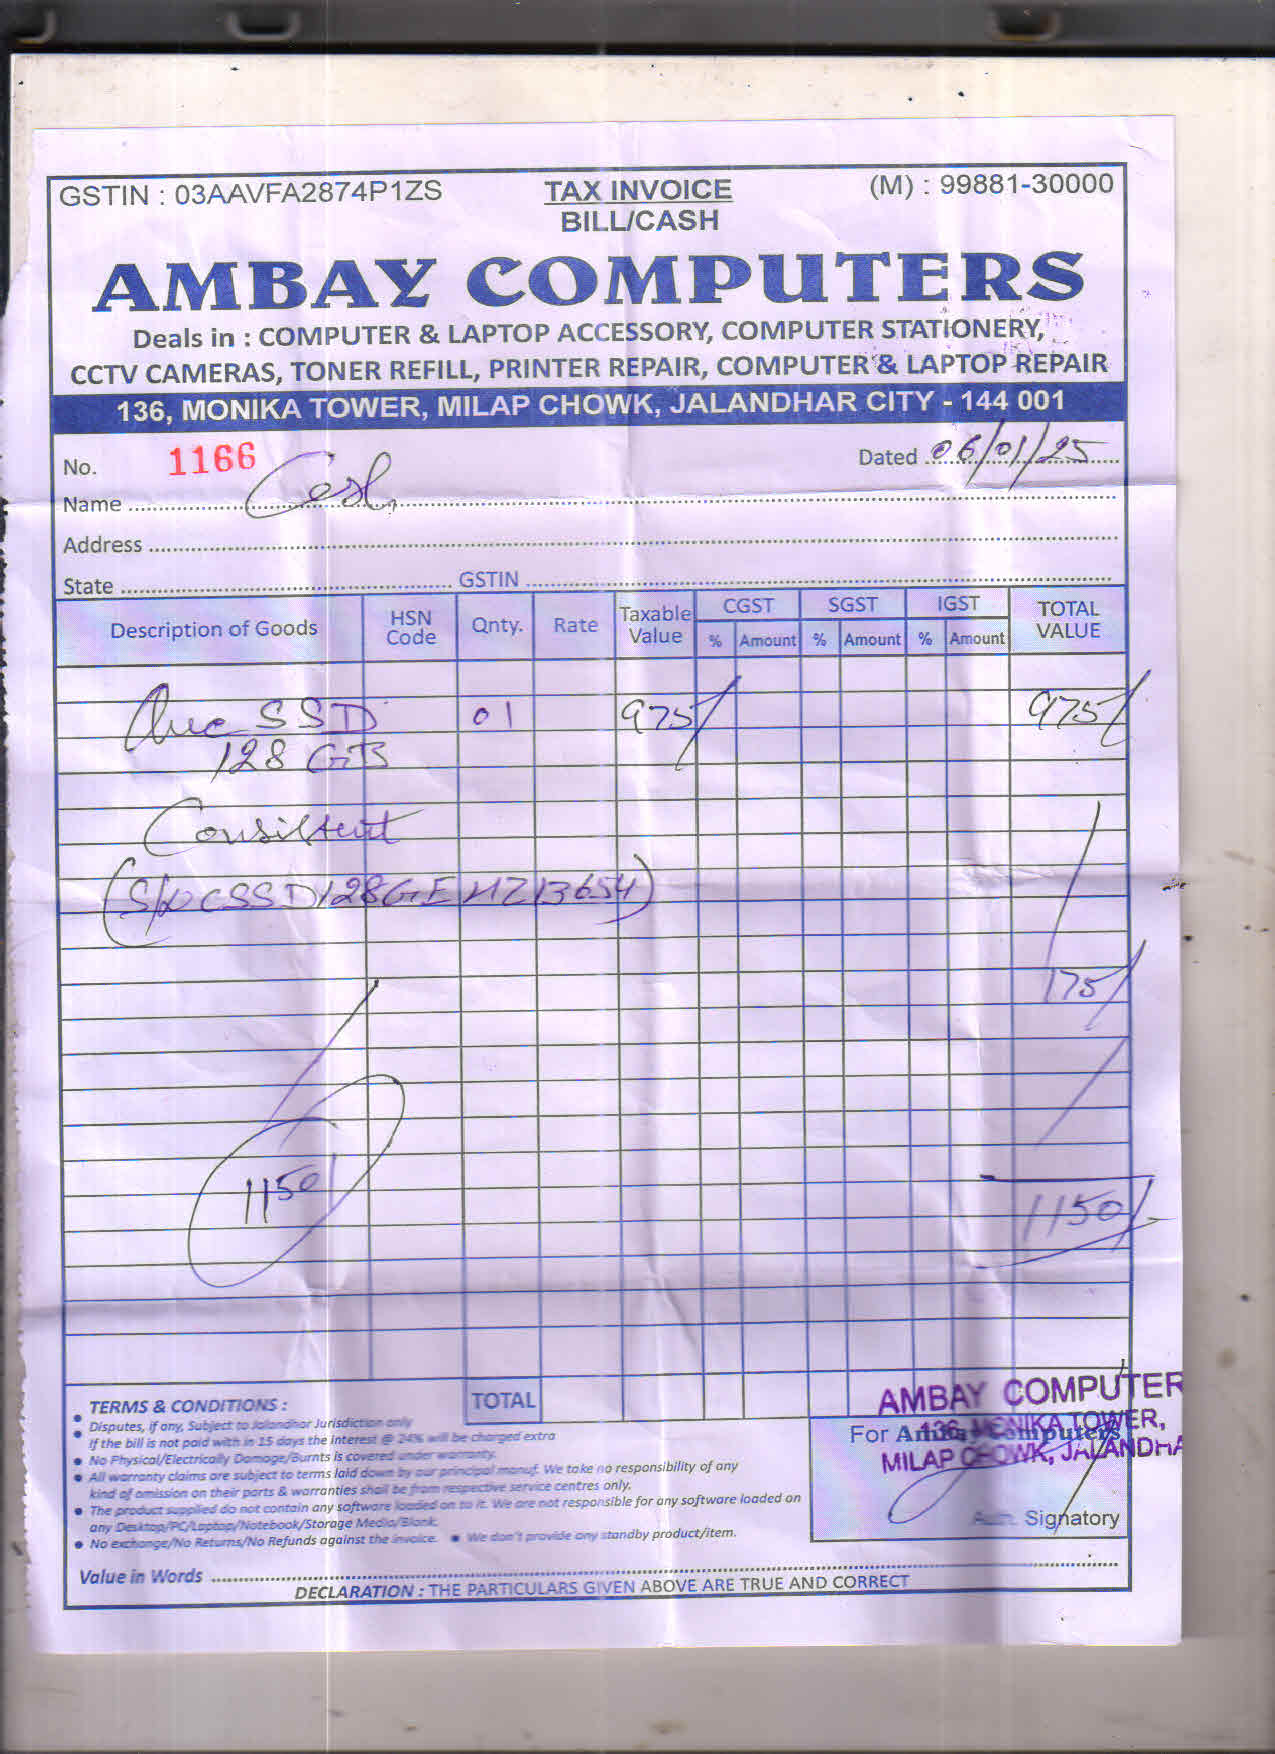 GSTIN : 03AAVFA2874P1ZS TAX INVOICE (M) : 99881-30000
BILL/CASH
AMBAY COMPUTERS
Deals in : COMPUTER & LAPTOP ACCESSORY, COMPUTER STATIONERY,
CCTV CAMERAS, TONER REFILL, PRINTER REPAIR, COMPUTER & LAPTOP REPAIR
136, MONIKA TOWER, MILAP CHOWK, JALANDHAR CITY - 144 001
No. 1166 Dated 06/01/25
Name Cash
Address
State GSTIN
Description of Goods HSN Code Qnty. Rate Taxable Value CGST SGST IGST TOTAL VALUE
% Amount % Amount % Amount
SSD 01 975/ 975/
128 GB
Consiltent
175/
1150/
1150/
TOTAL
TERMS & CONDITIONS :
Disputes, if any, Subject to Jalandhar Jurisdiction only
If the bill is not paid with in 15 days the Interest @ 24% will be charged extra
No Physical/Electrically Damage/Burnts is covered under warranty.
All warranty claims are subject to terms laid down by our principal manuf. We take no responsibility of any
kind of omission on their parts & warranties shall be from respective service centres only.
The product supplied do not contain any software loaded on to it. We are not responsible for any software loaded on
any Desktop/PC/Laptop/Notebook/Storage Media/Blank.
No exchange/No Returns/No Refunds against the invoice. We don't provide any standby product/item.
AMBAY COMPUTER
For Ambay Computers
136, MONIKA TOWER,
MILAP CHOWK, JALANDHA
Auth. Signatory
Value in Words
DECLARATION : THE PARTICULARS GIVEN ABOVE ARE TRUE AND CORRECT